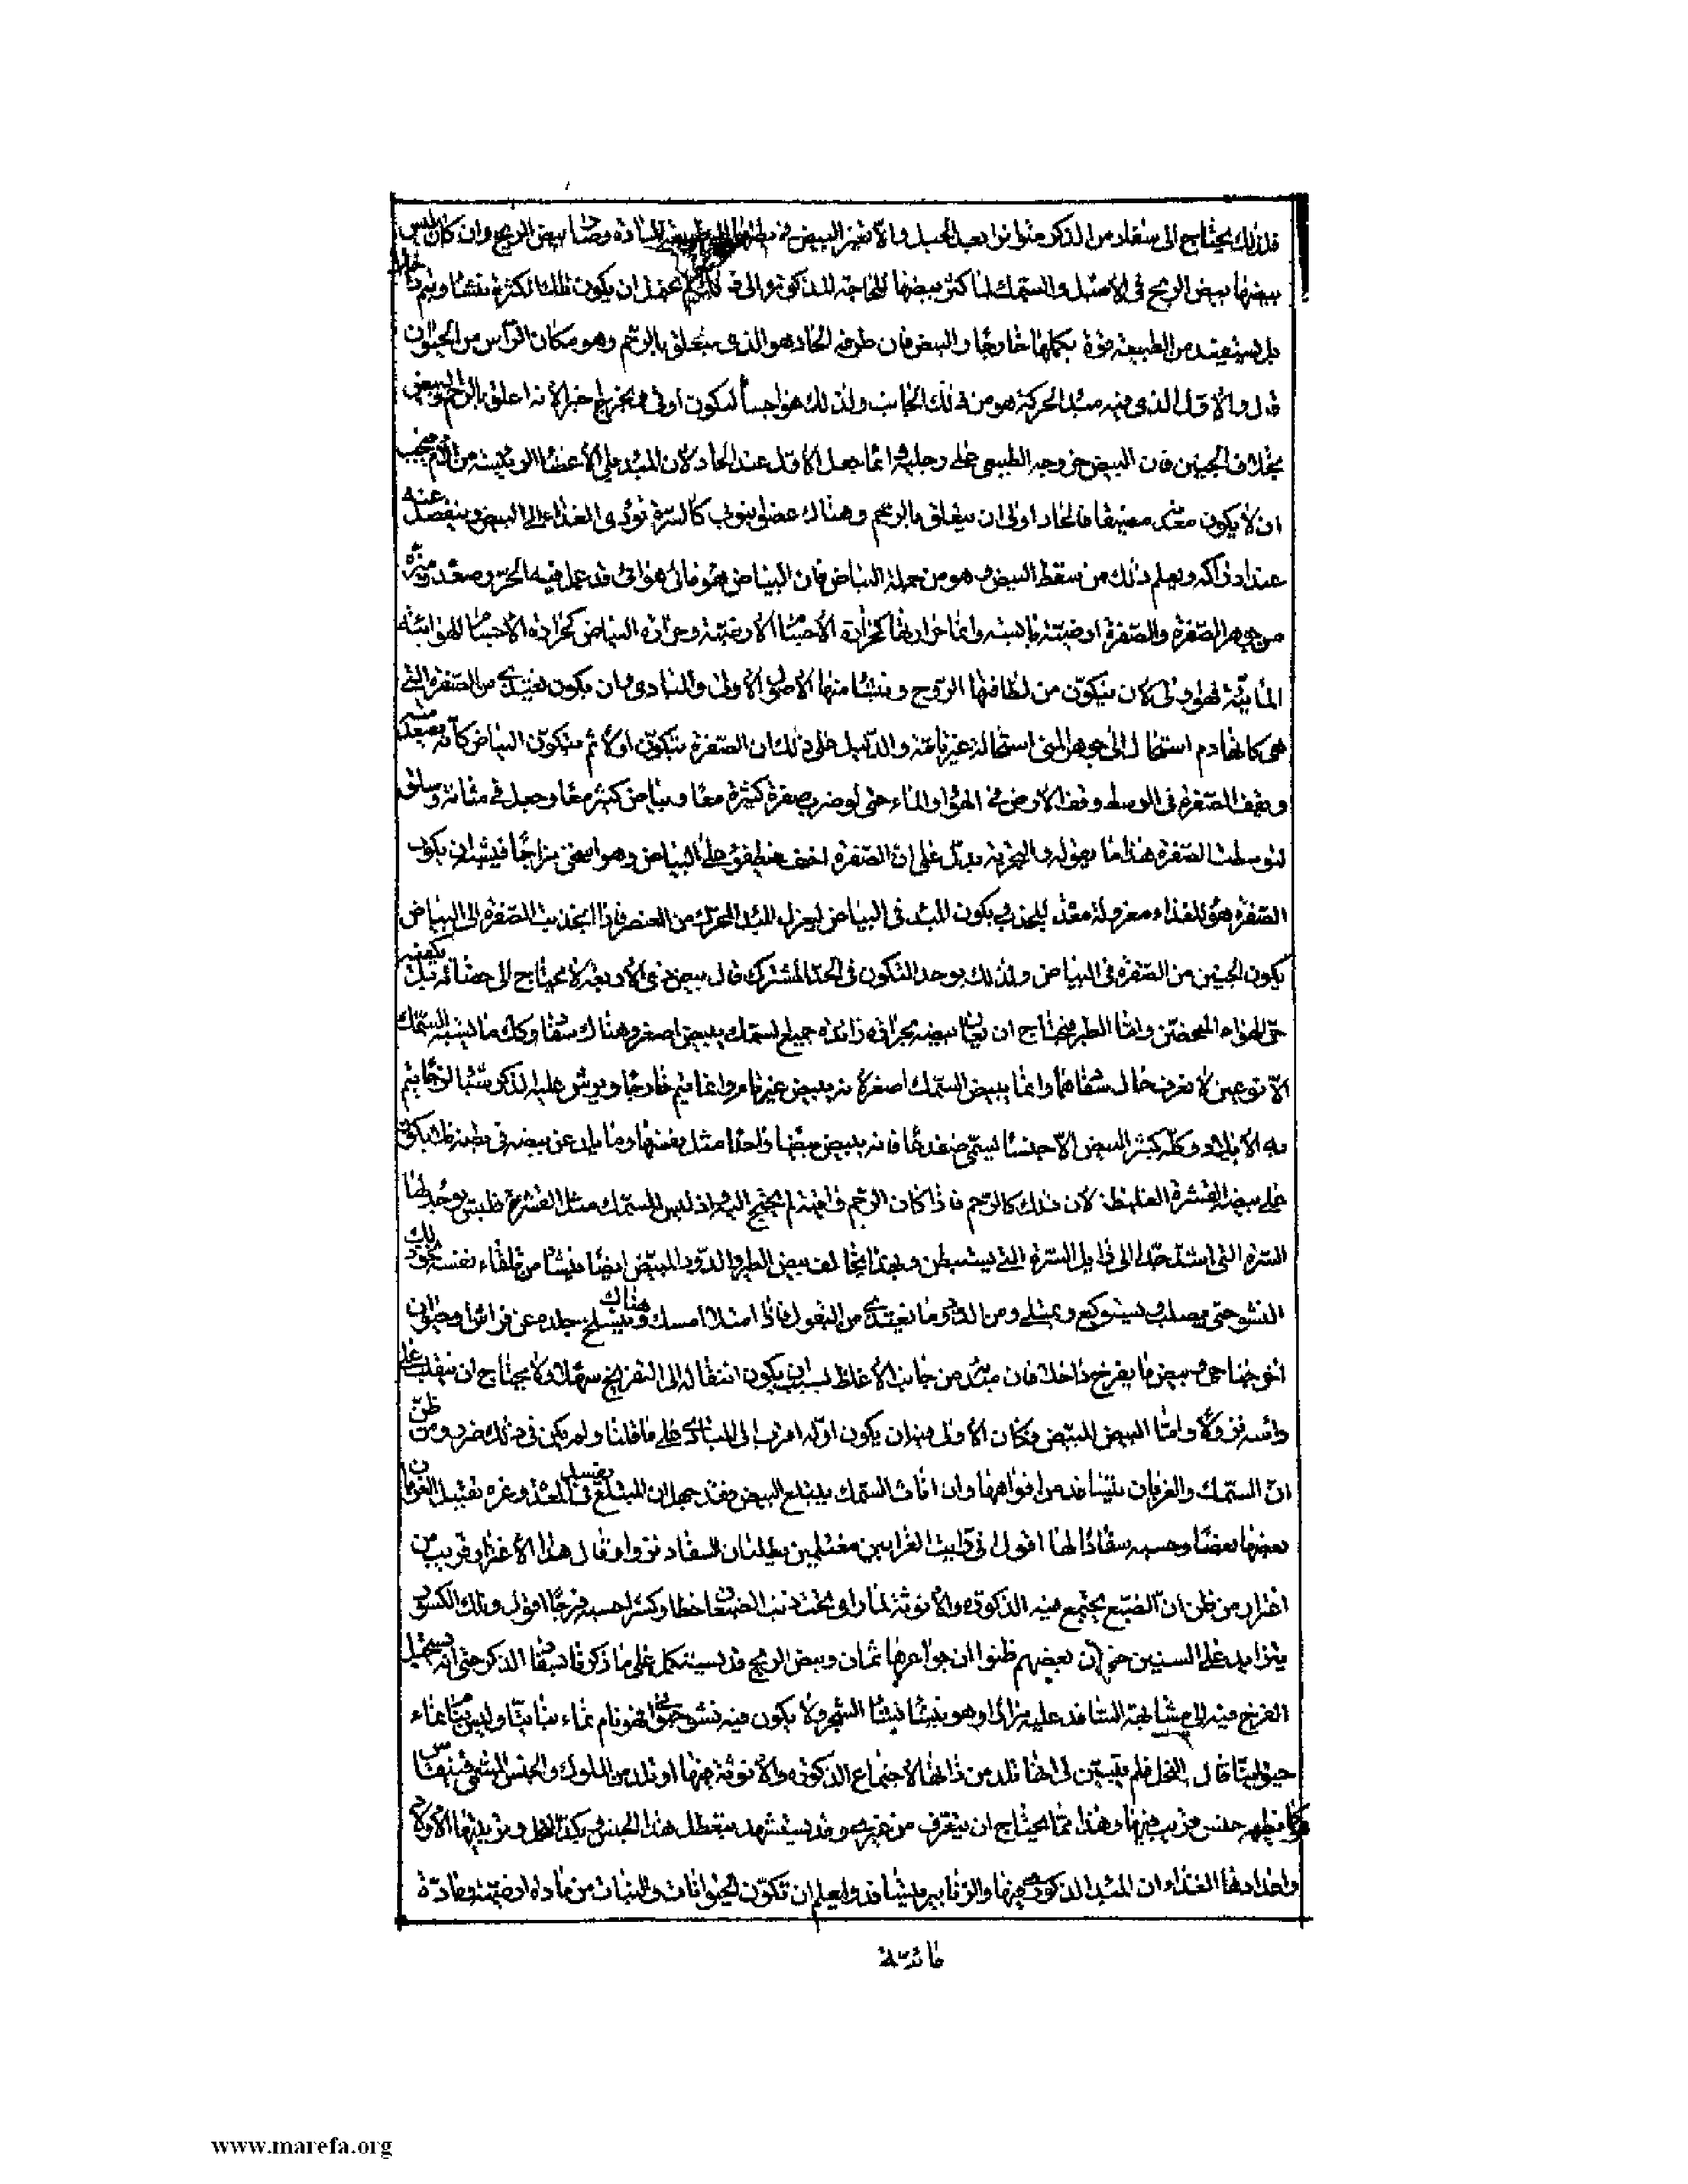 فلذلك يحتاج الى سفاد من الذكر متواتر بعد الحبل والا تغير البيض في بطنها المادة وصار بيض الريح وان كان ليس
بيضها بيض الريح في الاصل والسمك لما كثر بيضها للحاجة المذكورة والى ذلك لم يحتمل ان يكون ذلك الكثرة تنشأ ويتم داخلا
بل تستفيد من الطبيعة قوة يكملها خارجا والبيض فان طرفه الحاد هو الذي يتعلق بالرحم وهو مكان الرأس من الحيوان
قال والاول الذي فيه مبدء الحركة هو من ذلك الجانب ولذلك هو اجسأ ليكون اوقى ويخرج اخيرا لانه اعلق بالرحم والبيض
بخلاف الجنين فان البيض خروجه الطبيعي على رجليه انما جعل الاول عند الحاد لان المبدء على الأعضاء الرئيسة من الام فيجب
ان لا يكون معه مضيقا فالحاد اولى ان يتعلق بالرحم وهناك عضو ينوب كالسرة تؤدى الغذاء الى البيض وينفصل عنه
عند ادراكه ويعلم ذلك من سقط البيض وهو من جملة البياض فان البياض هو مائى هوائى قد عمل فيه الحر وصعد وميزه
من جوهر الصفرة والصفرة ارضية يابسة وانما حرارتها كحرارة الأجسام الارضية وحرارة البياض كحرارة الاجسام الهوائية
المائية فهو اولى لان يتكون من لطافتها الروح وينشأ منها الاصول الاولى والمبادى وان يكون تغتذى من الصفرة التي
هي كانها دم استحال الى جوهر المنى استحالة غير تامة والدليل على ذلك ان الصفرة تتكون اولا ثم يتكون البياض كانه يصعد منه
ويقف الصفرة في الوسط وقف الارض في الهواء والماء حتى لو ضرب صفرة كثيرة معا وبياض كثير معا وجعل في مثانة وسلق
لتوسطت الصفرة هذا ما يقوله والتجربة يدل على ان الصفرة اخف فتطفو على البياض وهو اسخن مزاجا فيشبه ان يكون
الصفرة هو للغذاء معزولة معدة للجذب ويكون المبدء في البياض ليعزل المبدء المحرك من العنصر فاذا انجذبت الصفرة الى البياض
يكون الجنين من الصفرة في البياض ولذلك يوجد التكون في الحد المشترك قال بيض ذي الأربعة لا يحتاج الى حضانة بل يكفيه
حر الهواء المحضن واما الطير فيحتاج ان يعان بيضه بحرارة زائدة جميع السمك يبيض اصغر وهناك سفاد وكل ما يشبه السمك
الا نوعين لا نعرف حال سفادهما وانما يبيض السمك اصغر لانه يبيض غير تام وانما يتم خارجا ويرش عليه الذكر شيئا لزجا يتم
به الاولاد وكله كثير البيض الا جنسا يسمى ضفدعا فانه يبيض بيضا واحدا مثل نفسها وما يلد عن بيضه في بطنه فلا يكون
على بيضه القشرة الغليظة لان ذلك كالرحم فاذا كان الرحم واقية لم يحتج اليه اذ ليس للسمك مثل القشرة فليس يوجد لها
السرة التي استدخدا الى ذابل السرة التي تستبطن وبهذا يخالف بيض الطير والدود المبيض ايضا ينشأ من تلقاء نفسه بعد ذلك
النشو حتى يصلب ويستوكع ويمتلى ومن الدود ما يغتذى من البقول فاذا امتلا امسك وينسلخ هناك جلده عن فراش وحيوان
اخر جناحي وبيض ما يفرخ داخلا فان مبدءه من جانب الاغلظ بسبب ان يكون انتقاله الى التفريخ سهلا ولا يحتاج ان ينقلب على
رأسه نزولا واما البيض المبيض فكان الاولى فيه ان يكون اوله اقرب الى المبادى على ما قلنا ولم يكن في ذلك ضرر ومن ظن
ان السمك والغربان يتسافد من افواهها وان اناث السمك يبتلع البيض فقد جهل ان المبتلع يفسد في المعدة وغره تقبيل الغربان
بعضها بعضا وحسبه سفادا لها اقول انى رأيت الغرابين مغتلمين يطلبان السفاد نزوا وقال هذا الاغترار قريب من
اغترار من ظن ان الضبع يجتمع فيه الذكورة والانوثة لما راو تحت ذنب الضبعان خطا وكسرا حسبه فرجا اقول وتلك الكسور
يتزايد على السنين حتى ان بعضهم ظنوا ان جواعرها ثمان وبيض الريح قد يستكمل على ما ذكرنا بسفاد الذكر حتى انه يستحيل
الفرخ فيه الى مشابهة السافد عليه مرارا وهو ينشأ نشأ الشجر ولا يكون فيه نشو حيوانى فهو نام نماء نباتيا وليس ناميا نماء
حيوانيا قال النحل فلم يتبين لى انها تلد من ذاتها لاجتماع الذكورة والانوثة فيها او تلد من الملوك والجنس المسمى فينفسا
وكانه جنس قريب فيها وهذا مما يحتاج ان يتعرف من غيره وقد يستشهد بتعطل هذا الجنس ويكد النحل وتربيتها الاولاد
واعدادها الغذاء ان المبدء الذكورى فيها والزنابير يتسافد وليعلم ان تكون الحيوانات والنبات من مادة ارضية ومادة
مائية
www.marefa.org